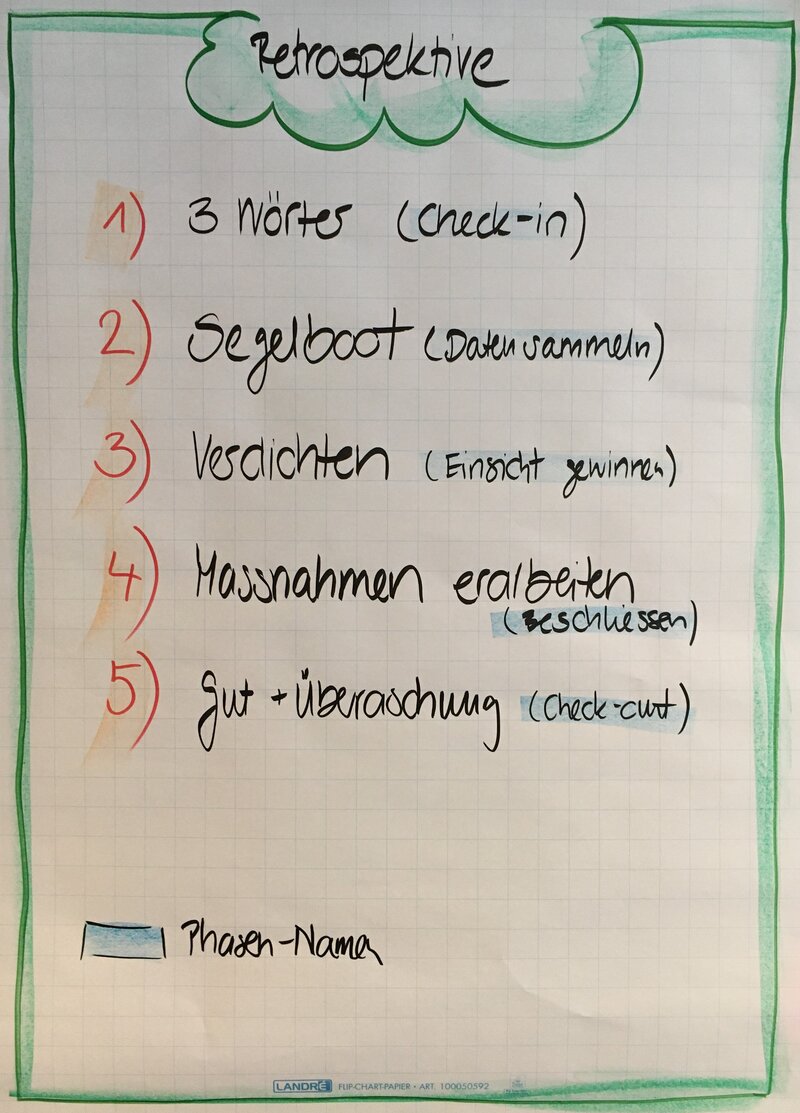 Retrospektive
1) 3 Wörter (Check-in)
2) Segelboot (Daten sammeln)
3) Verdichten (Einsicht gewinnen)
4) Massnahmen erarbeiten
(Beschliessen)
5) Gut + Überaschung (Check-out)
Phasen-Namen
LANDRÉ FLIP-CHART-PAPIER • ART. 100050592